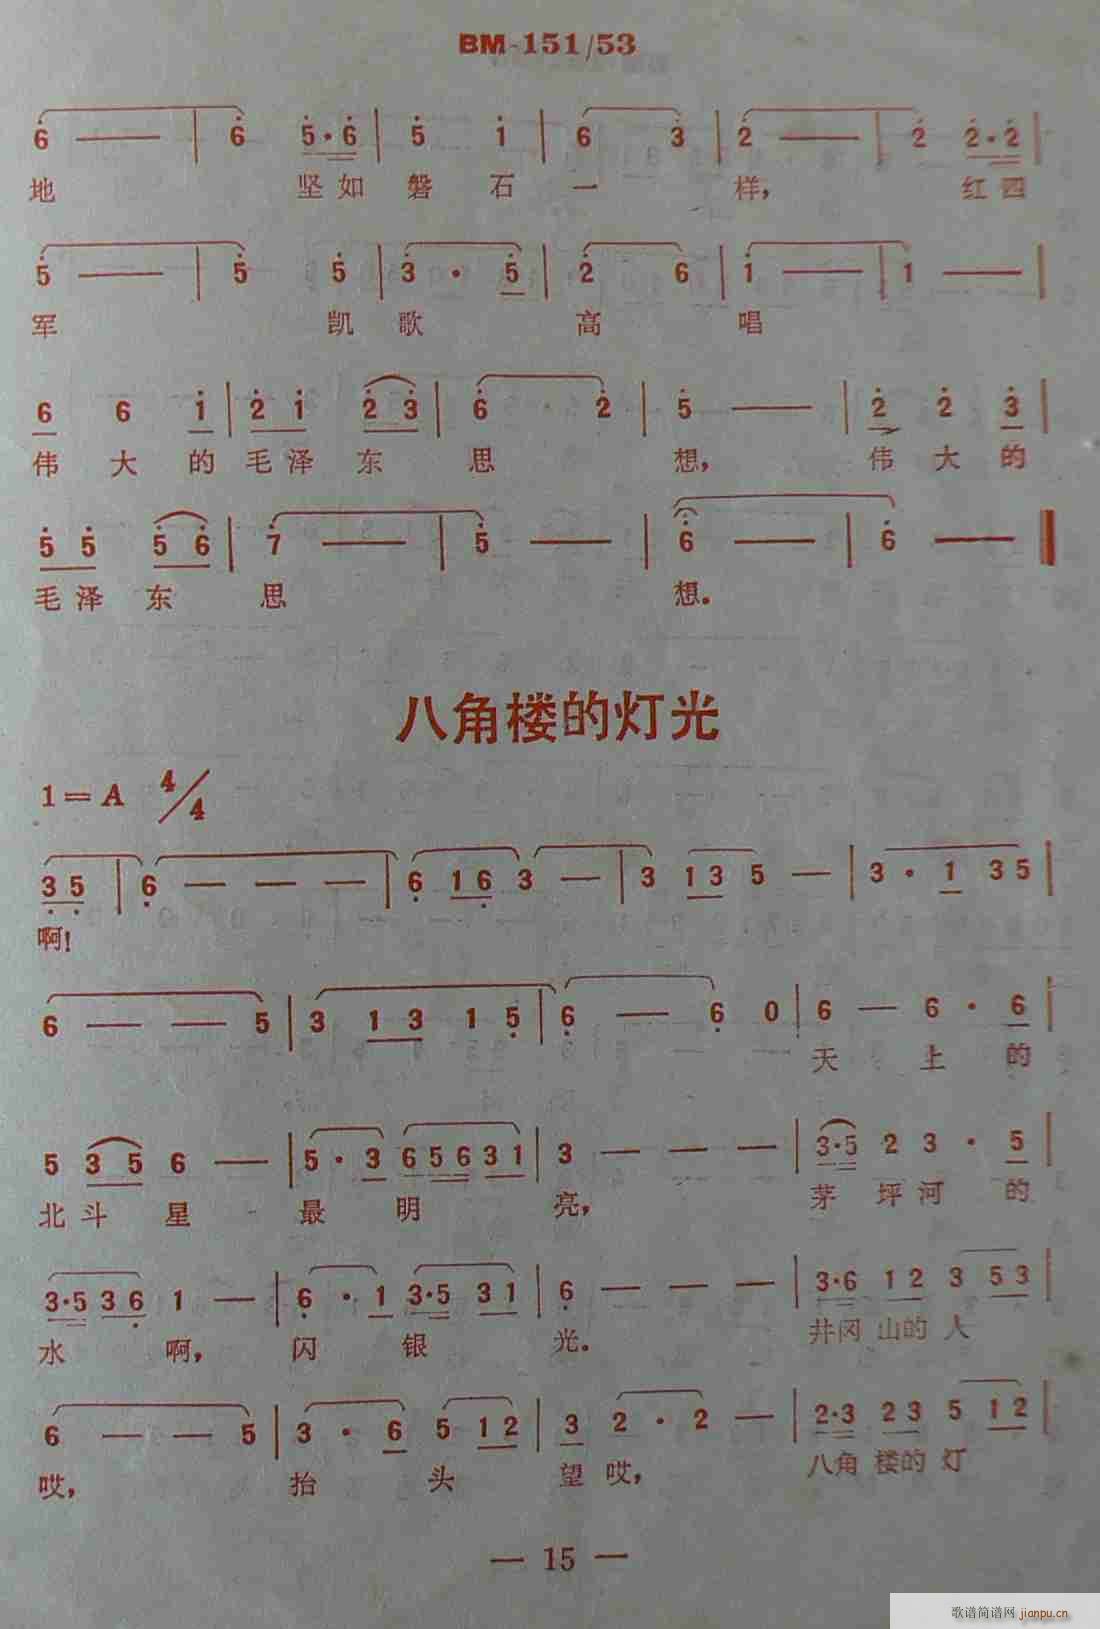 BM-151/53
6 — | 6 5·6 | 5 1 | 6 3 | 2 — | 2 2·2 |
地 坚如 磐 石 一 样, 红四
5 — | 5 5 | 3 · 5 | 2 6 | 1 — | 1 — |
军 凯 歌 高 唱
6 6 1 | 2 1 2 3 | 6 · 2 | 5 — | 2 2 3 |
伟 大 的 毛 泽 东 思 想, 伟 大 的
5 5 5 6 | 7 — | 5 — | 6 — | 6 — ‖
毛 泽 东 思 想。
八角楼的灯光
1=A 4/4
3 5 | 6 — — — | 6 1 6 3 — | 3 1 3 5 — | 3 · 1 3 5 |
啊!
6 — — 5 | 3 1 3 1 5 | 6 — 6 0 | 6 — 6 · 6 |
天 上 的
5 3 5 6 — | 5 · 3 6 5 6 3 1 | 3 — — — | 3·5 2 3 · 5 |
北 斗 星 最 明 亮, 茅 坪 河 的
3·5 3 6 1 — | 6 · 1 3·5 3 1 | 6 — — — | 3·6 1 2 3 5 3 |
水 啊, 闪 银 光。 井冈 山的 人
6 — — 5 | 3 · 6 5 1 2 | 3 2 · 2 — | 2·3 2 3 5 1 2 |
哎, 抬 头 望 哎, 八角 楼的 灯
— 15 —
歌谱简谱网
jianpu.cn